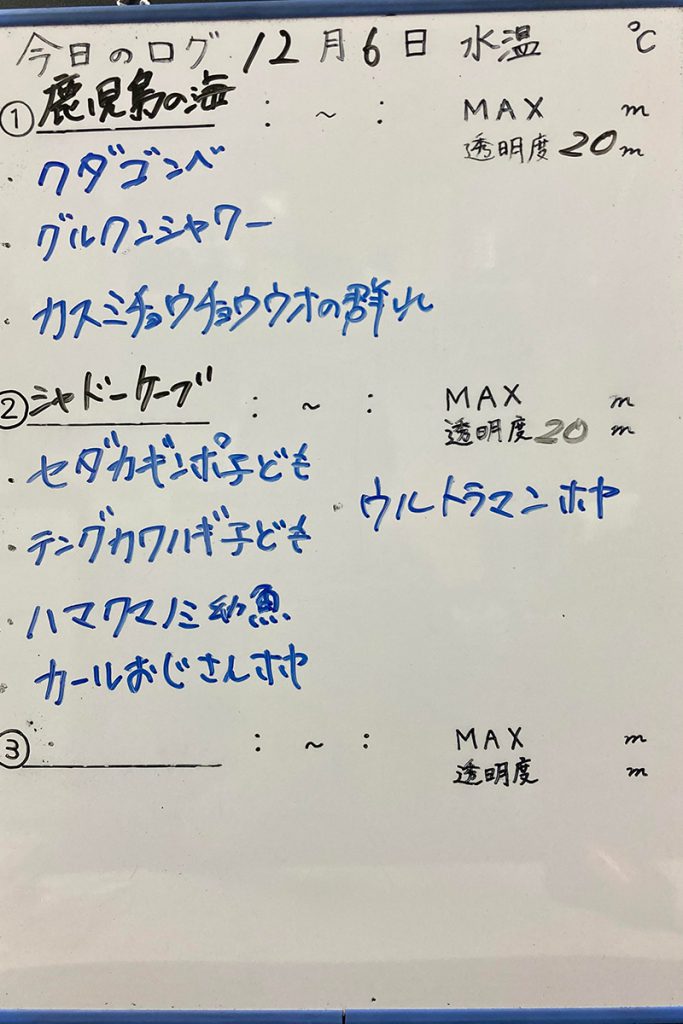 今日のログ 12月6日 水温 ℃
① 鹿児島の海 : ~ : MAX m
透明度 20 m
・クダゴンベ
・グルクンシャワー
・カスミチョウチョウウオの群れ
② シャドーケーブ : ~ : MAX m
透明度 20 m
・セダカギンポ子ども
・ウルトラマンホヤ
・テングカワハギ子ども
・ハマクマノミ幼魚
・カールおじさんホヤ
③ : ~ : MAX m
透明度 m